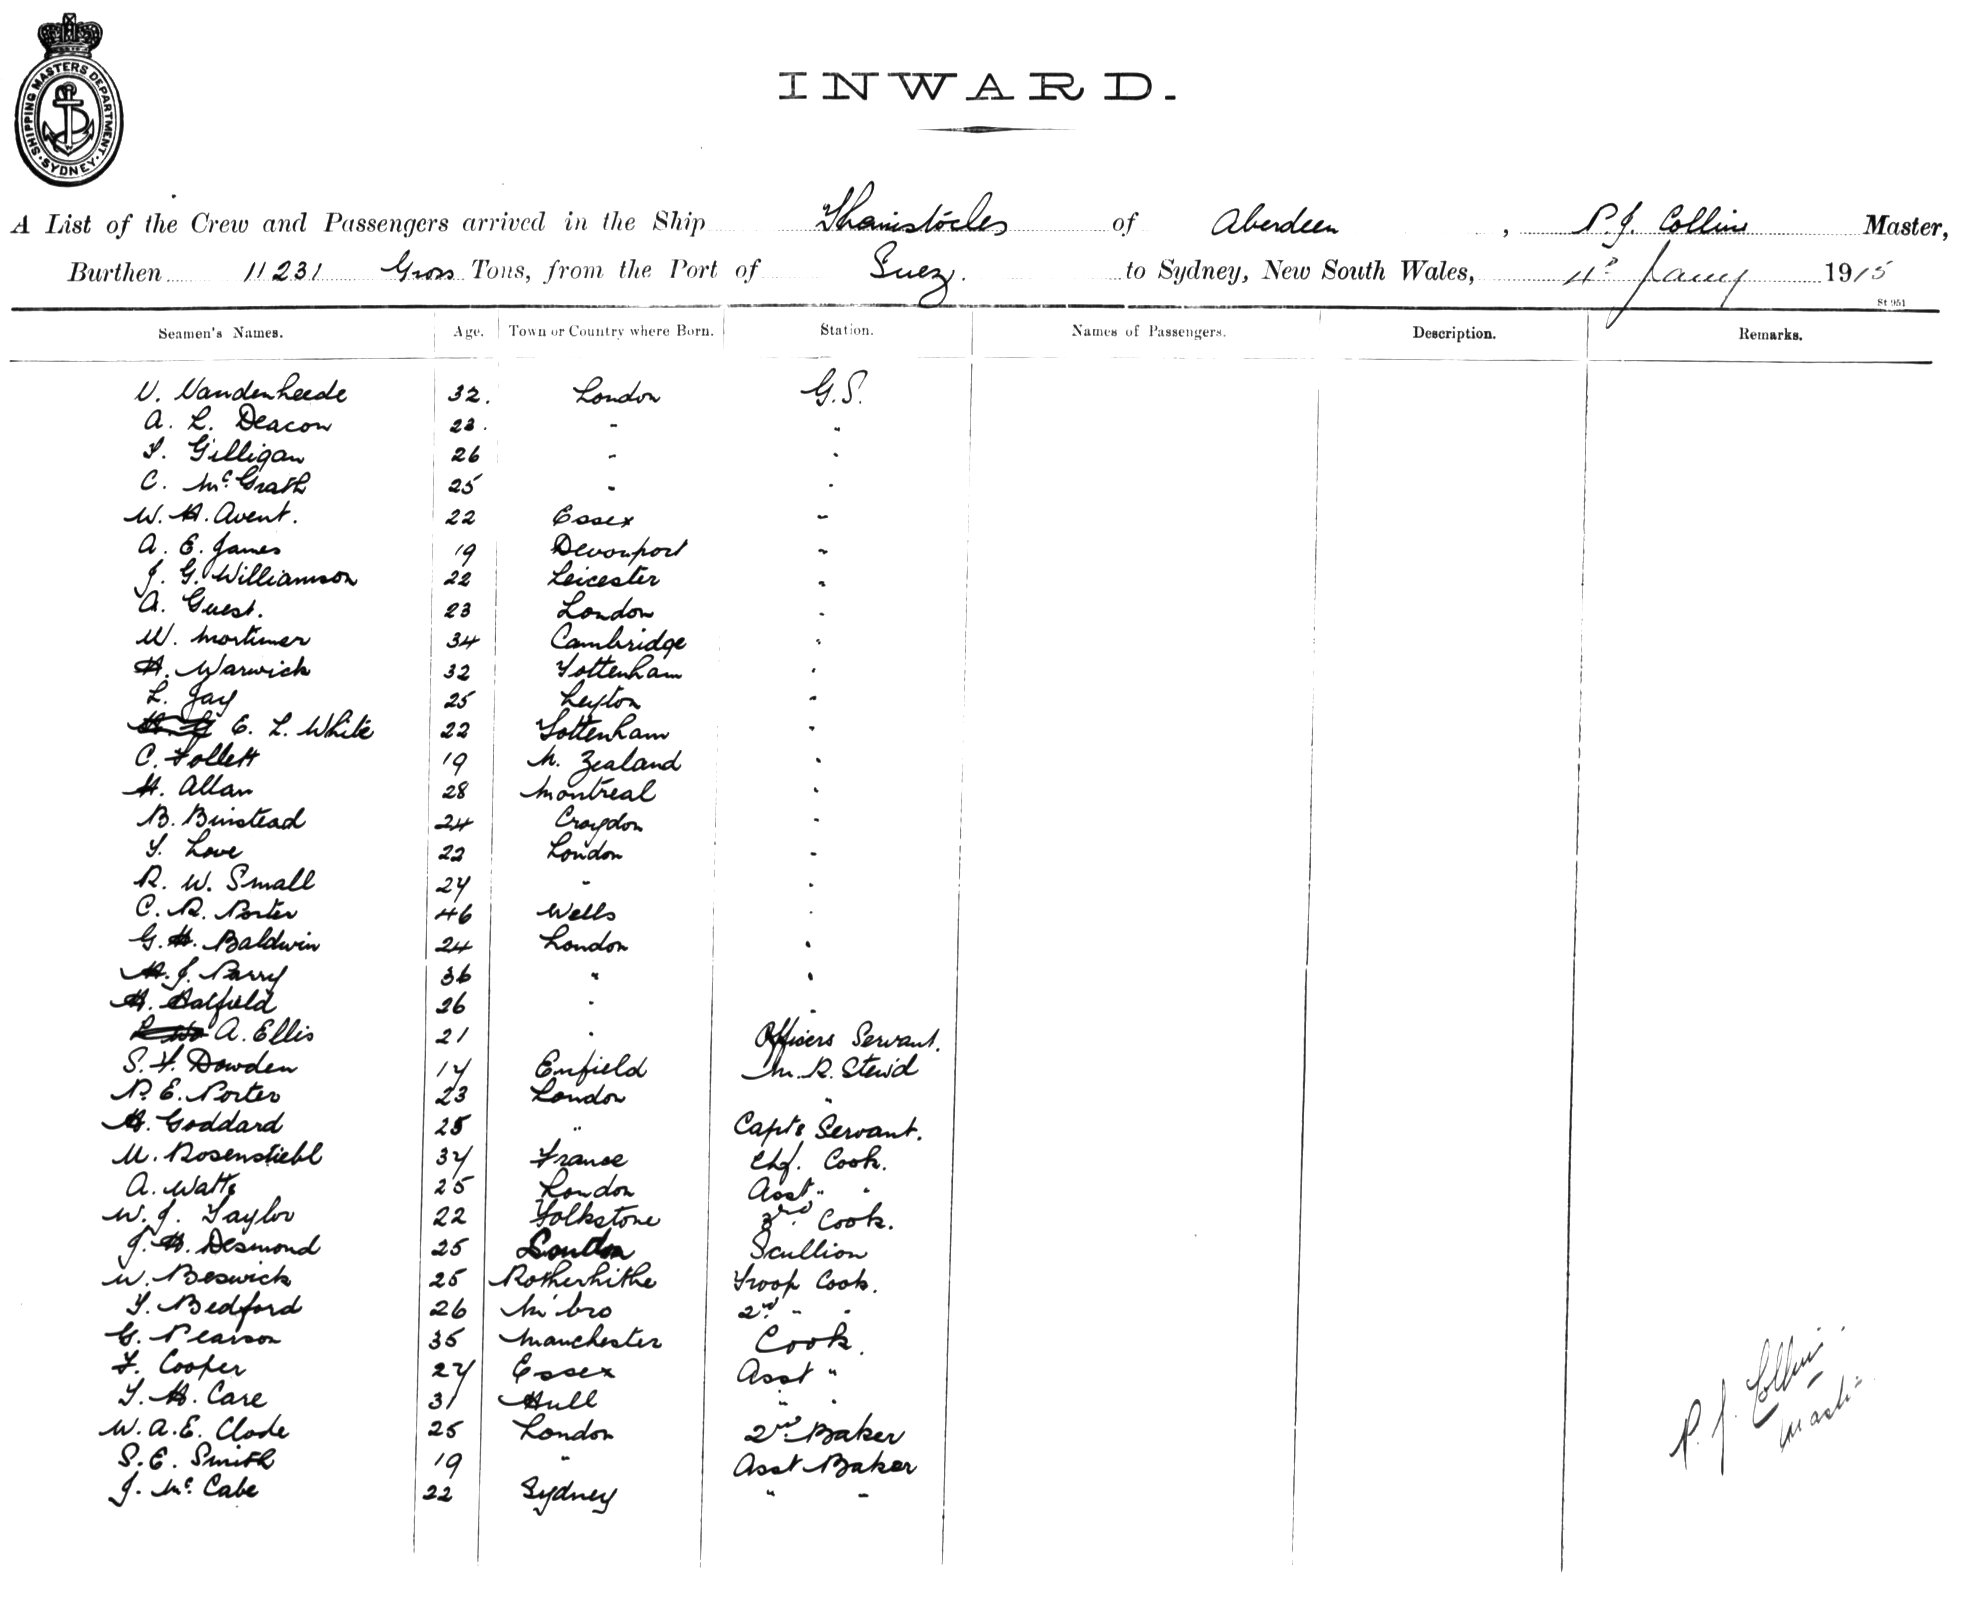 SHIPPING MASTERS DEPARTMENT. SYDNEY
INWARD.
A List of the Crew and Passengers arrived in the Ship Themistocles of Aberdeen, P. J. Collins Master,
Burthen 11231 Gross Tons, from the Port of Suez. to Sydney, New South Wales, Jany 1915
St 951
Seamen's Names. Age. Town or Country where Born. Station. Names of Passengers. Description. Remarks.
V. Vandenheede 32. London G.S.
A. L. Deacon 23. " "
T. Gilligan 26 " "
C. McGrath 25 " "
W. H. Avent. 22 Essex "
A. E. James 19 Devonport "
J. G. Williamson 22 Leicester "
A. Guest. 23 London "
W. Mortimer 34 Cambridge "
H. Warwick 32 Tottenham "
L. Jay 25 Leyton "
E. L. White 22 Tottenham "
C. Follett 19 N. Zealand "
H. Allan 28 Montreal "
B. Binstead 24 Croydon "
T. Love 22 London "
R. W. Small 27 " "
C. R. Porter 46 Wells "
G. H. Baldwin 24 London "
H. J. Parry 36 " "
H. Hatfield 26 " "
A. Ellis 21 " Officers Servant.
S. F. Dowden 17 Enfield M. R. Stew'd
P. E. Porter 23 London "
H. Goddard 25 " Capts Servant.
M. Rosenstiehl 37 France Chf. Cook.
A. Watts 25 London Asst " "
W. J. Taylor 22 Folkstone 3rd Cook.
J. H. Desmond 25 London Scullion
W. Beswick 25 Rotherhithe Troop Cook.
T. Bedford 26 M'bro 2nd " "
G. Pearson 35 Manchester Cook.
F. Cooper 27 Essex Asst "
T. H. Care 31 Hull " "
W. A. E. Clode 25 London 2nd Baker
S. E. Smith 19 " Asst Baker
J. McCabe 22 Sydney " "
P. J. Collins
Master